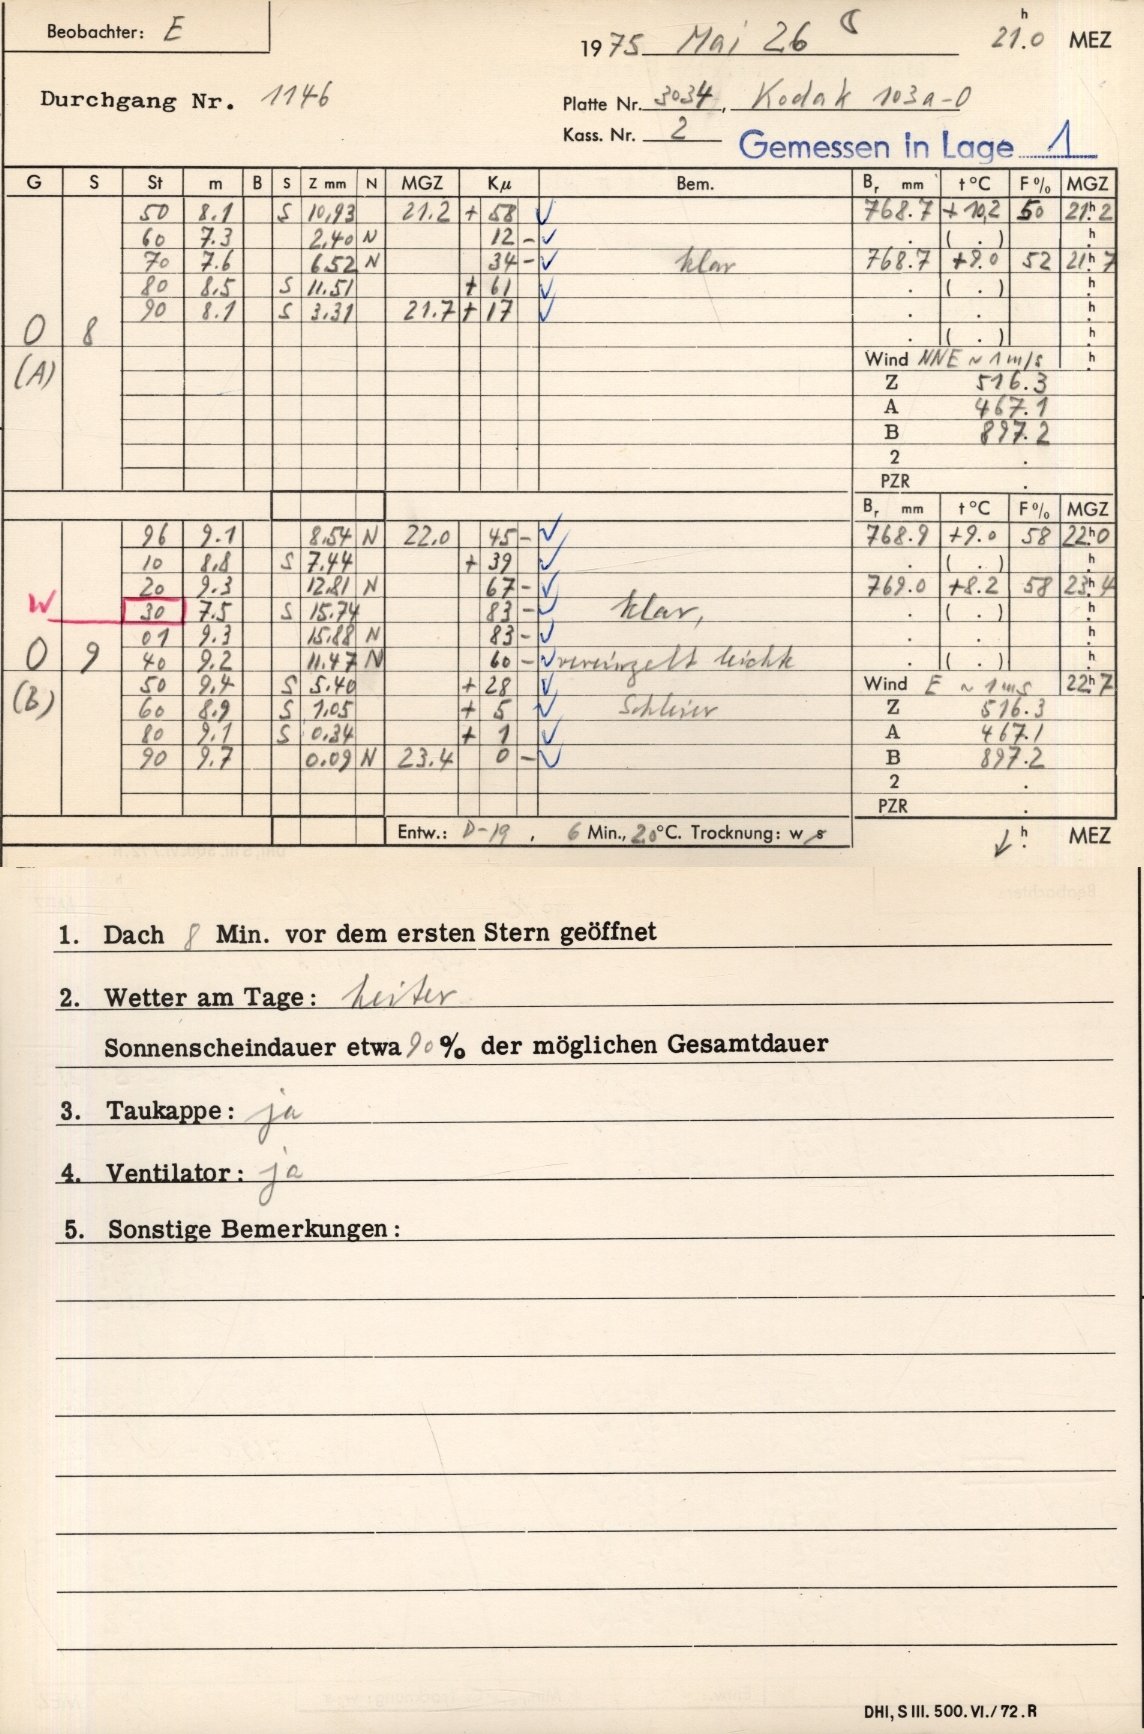 Beobachter: E
1975 Mai 26 21h.0 MEZ
Durchgang Nr. 1146
Platte Nr. 3034, Kodak 103a-O
Kass. Nr. 2 Gemessen in Lage 1
G S St m B S Z mm N MGZ Kμ Bem. Br mm t °C F% MGZ
50 8.1 S 10,93 21.2 + 58 ✓ 768.7 + 10,2 50 21h.2
60 7.3 2.40 N 12 - ✓ . ( . ) h
70 7.6 6.52 N 34 - ✓ klar 768.7 +9.0 52 21h.7
80 8.5 S 11.51 + 61 ✓ . ( . ) h.
90 8.1 S 3.31 21.7 + 17 ✓ . . h.
0 8 . ( . ) h.
(A) Wind NNE ~ 1 m/s h.
Z 516.3
A 467.1
B 897.2
2 .
PZR .
Br mm t °C F% MGZ
96 9.1 8.54 N 22.0 45 - ✓ 768.9 +9.0 58 22h.0
10 8.8 S 7.44 + 39 ✓ . ( . ) h.
20 9.3 12.81 N 67 - ✓ 769.0 +8.2 58 23h.4
W 30 7.5 S 15.74 83 - ✓ klar, . ( . ) h.
01 9.3 15.88 N 83 - ✓ . . h.
0 9 40 9.2 11.47 N 60 - ✓ vereinzelt leichte . ( . ) h.
(B) 50 9.4 S 5.40 + 28 ✓ Wind E ~ 1 ms 22h.7
60 8.9 S 1.05 + 5 ✓ Schleier Z 516.3
80 9.1 S 0.34 + 1 ✓ A 467.1
90 9.7 0.09 N 23.4 0 - ✓ B 897.2
2 .
PZR .
Entw.: D-19, 6 Min., 20°C. Trocknung: w s h. MEZ
1. Dach 8 Min. vor dem ersten Stern geöffnet
2. Wetter am Tage: heiter
Sonnenscheindauer etwa 90% der möglichen Gesamtdauer
3. Taukappe: ja
4. Ventilator: ja
5. Sonstige Bemerkungen:
DHI, S III. 500. VI./72. R